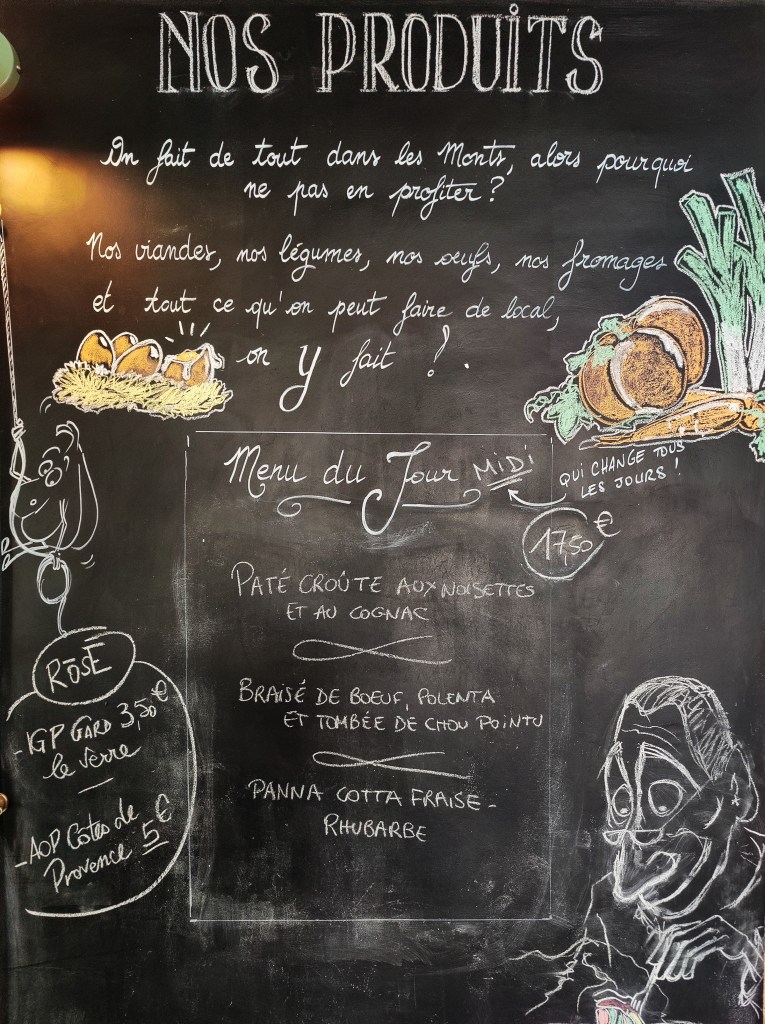 NOS PRODUITS
On fait de tout dans les Monts, alors pourquoi
ne pas en profiter ?
Nos viandes, nos légumes, nos oeufs, nos fromages
et tout ce qu'on peut faire de local,
on y fait ! .
Menu du Jour MIDI
QUI CHANGE TOUS
LES JOURS !
17,50 €
PATÉ CROÛTE AUX NOISETTES
ET AU COGNAC
BRAISÉ DE BOEUF, POLENTA
ET TOMBÉE DE CHOU POINTU
PANNA COTTA FRAISE -
RHUBARBE
ROSÉ
- IGP GARD 3,50 €
le verre
- AOP Côtes de
Provence 5 €